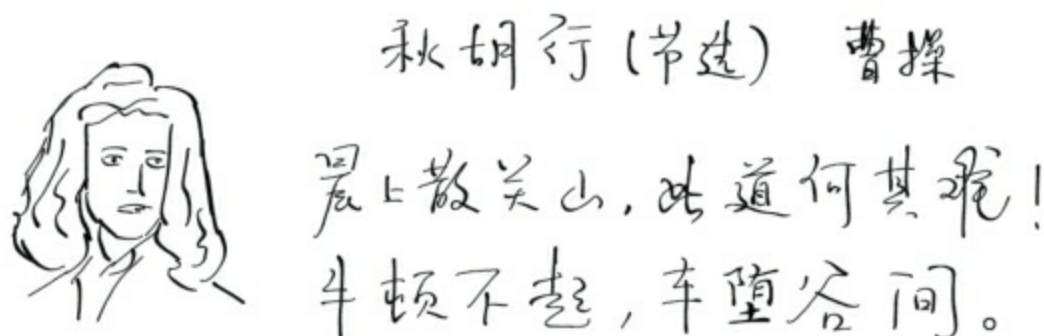 秋胡行(节选) 曹操
晨上散关山,此道何其难!
牛顿不起,车堕谷间。